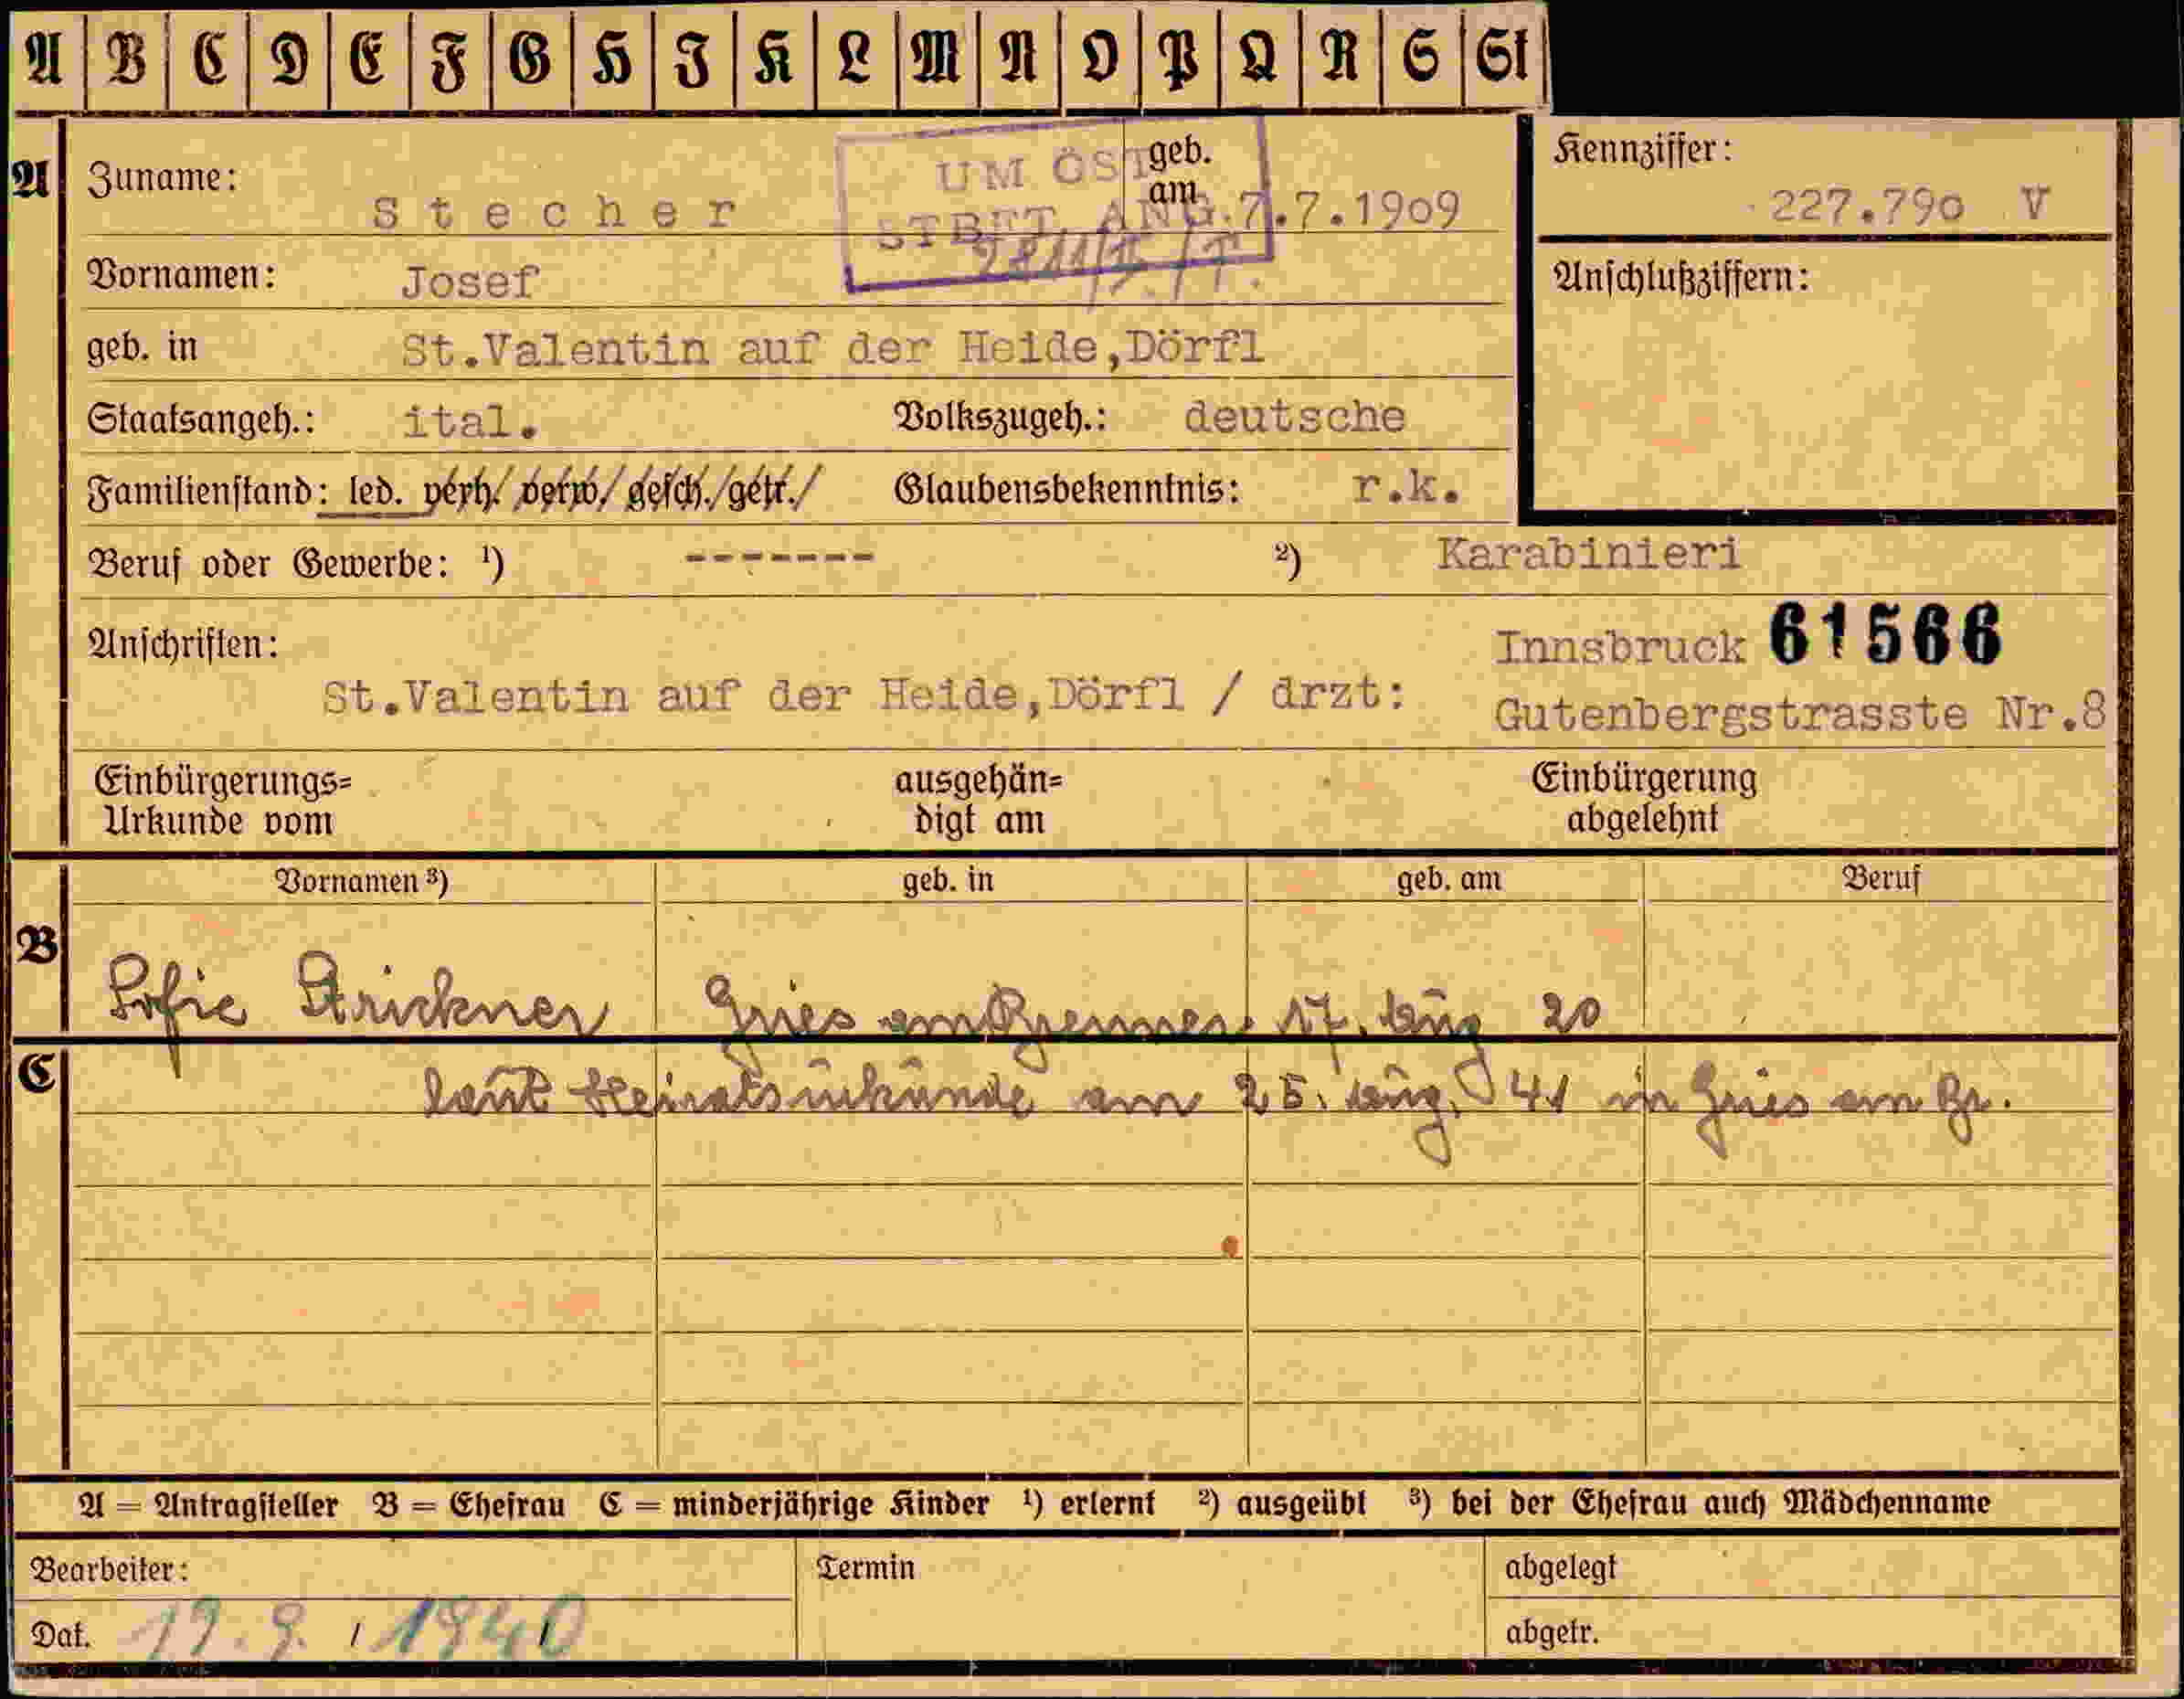 A B C D E F G H I K L M N O P Q R S St
A Zuname: Stecher geb. am 7.7.1909
UM ÖST.
STBET. ANG.
Kennziffer: 227.790 V
Vornamen: Josef
Anschlußziffern:
geb. in St.Valentin auf der Heide,Dörfl
Staatsangeh.: ital. Volkszugeh.: deutsche
Familienstand: led. verh./verw./gesch./getr./ Glaubensbekenntnis: r.k.
Beruf oder Gewerbe: ¹) ------- ²) Karabinieri
Anschriften: Innsbruck 61566
St.Valentin auf der Heide,Dörfl / drzt: Gutenbergstrasste Nr.8
Einbürgerungs= ausgehän= Einbürgerung
Urkunde vom digt am abgelehnt
Vornamen ³) geb. in geb. am Beruf
B Sofie Strickner Gries am Brenner 17. Aug 20
C laut Heiratsurkunde am 25. Aug. 41 in Gries am Br.
A = Antragsteller B = Ehefrau C = minderjährige Kinder ¹) erlernt ²) ausgeübt ³) bei der Ehefrau auch Mädchenname
Bearbeiter: Termin abgelegt
Dat. 19.9.1940 abgetr.